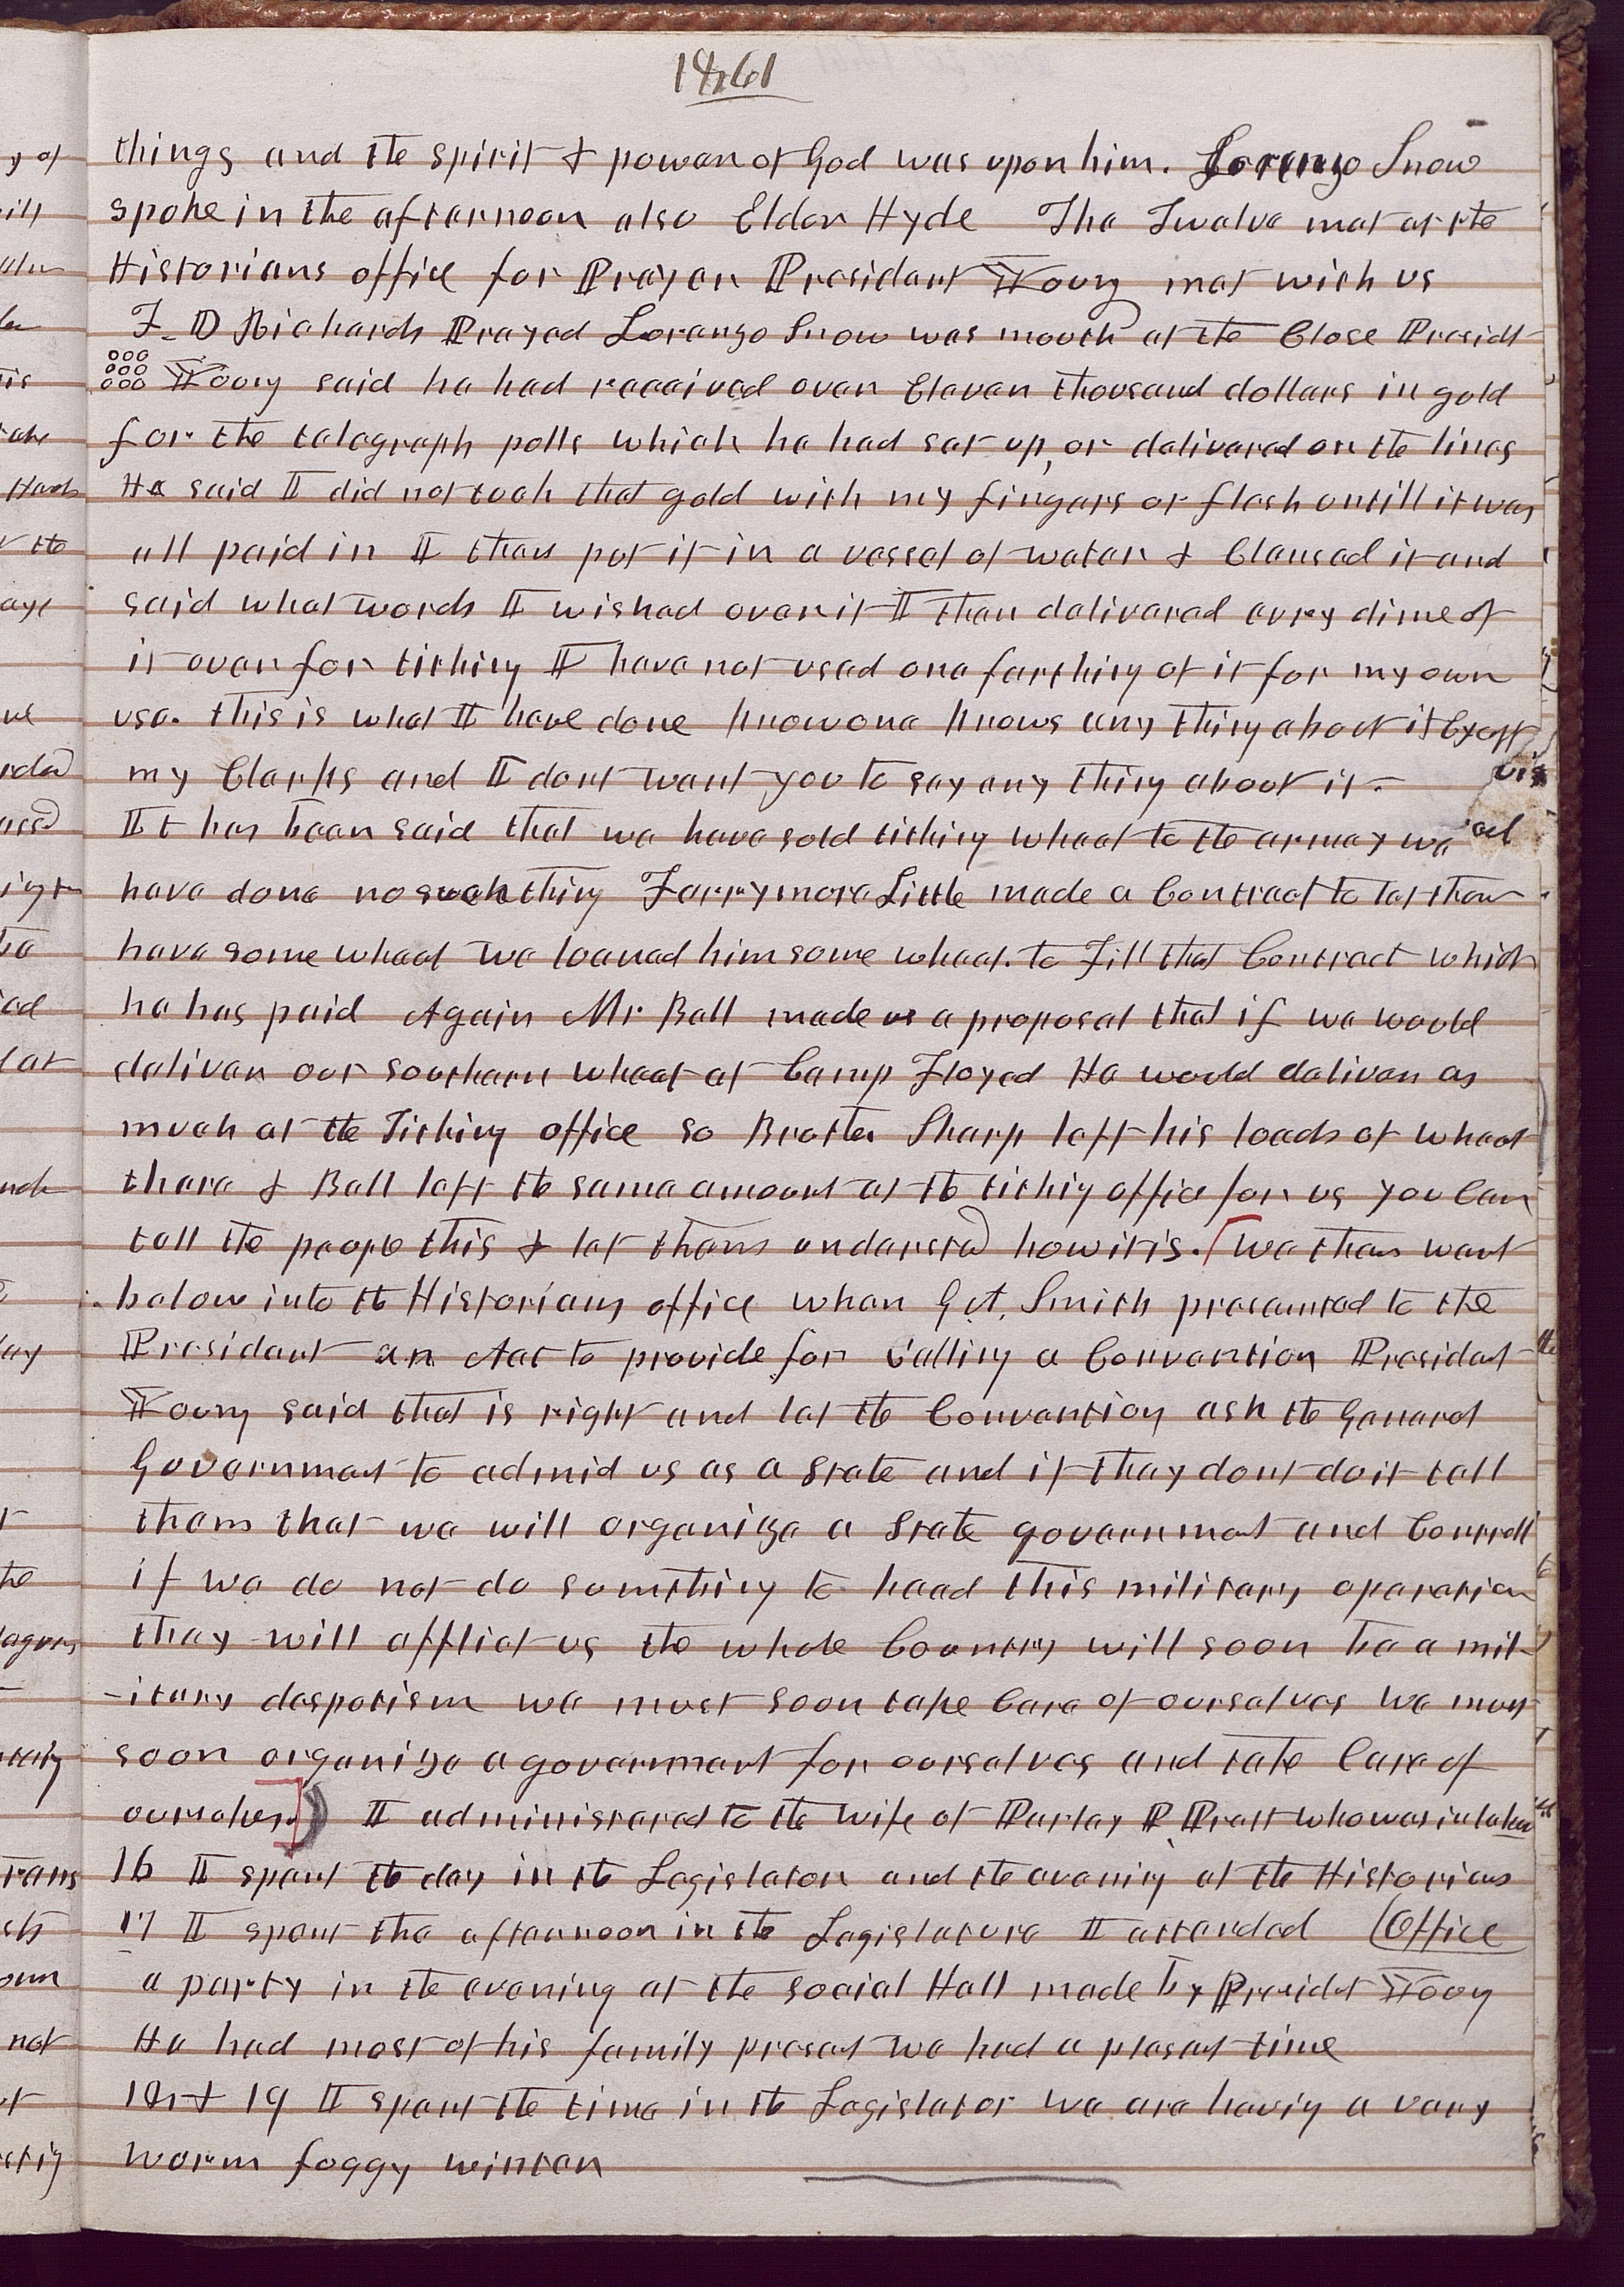 1861
things and the spirit & power of God was upon him. Lorenzo Snow
spoke in the afternoon also Elder Hyde The Twelve met at the
Historians office for Prayer President Young met with us
F. D Richards Prayed Lorenzo Snow was mouth at the Close Presidt
Young said he had received over Eleven thousand dollars in gold
for the telegraph polls which he had set up, or delivered on the lines
He said I did not toch that gold with my fingers or flesh untill it was
all paid in I then put it in a vessel of water & Clensed it and
said what words I wished over it I then delivered evry dime of
it over for tithing I have not used one farthing of it for my own
use. this is what I have done know one knows any thing about it Except
my Clerks and I dont want you to say any thing about it.
It has been said that we have sold tithing wheat to the armey we
have done no such thing Ferrymore Little made a Contract to let them
have some wheat we loaned him some wheat. to Fill that Contract which
he has paid Again Mr Ball made us a proposal that if we would
deliver our southern wheat at Camp Floyed He would deliver as
much at the Tithing office so Brother Sharp left his loads of wheat
there & Ball left the same amount at the tithing office for us you Can
tell the people this & let them understd how it is. We then went
below into the Historians office when G. A. Smith presented to the
President an Act to provide for Calling a Convention President
Young said that is right and let the Convention ask the General
Government to admid us as a State and if they dont do it tell
them that we will organize a State government and Controll
if we do not do somthing to head this military operation
they will afflict us the whole Country will soon be a mil-
-itary despotism we must soon take Care of ourselves we must
soon organize a government for ourselves and take Care of
ourselves I administered to the wife of Parley P Pratt who was in labor
16 I spent the day in the Legislator and the evening at the Historians
17 I spent the afternoon in the Legislature I attended (Office
a party in the evening at the Social Hall made by Presidet Young
He had most of his family present we had a plesent time
18 & 19 I spent the time in the Legislator we are having a very
worm foggy winter